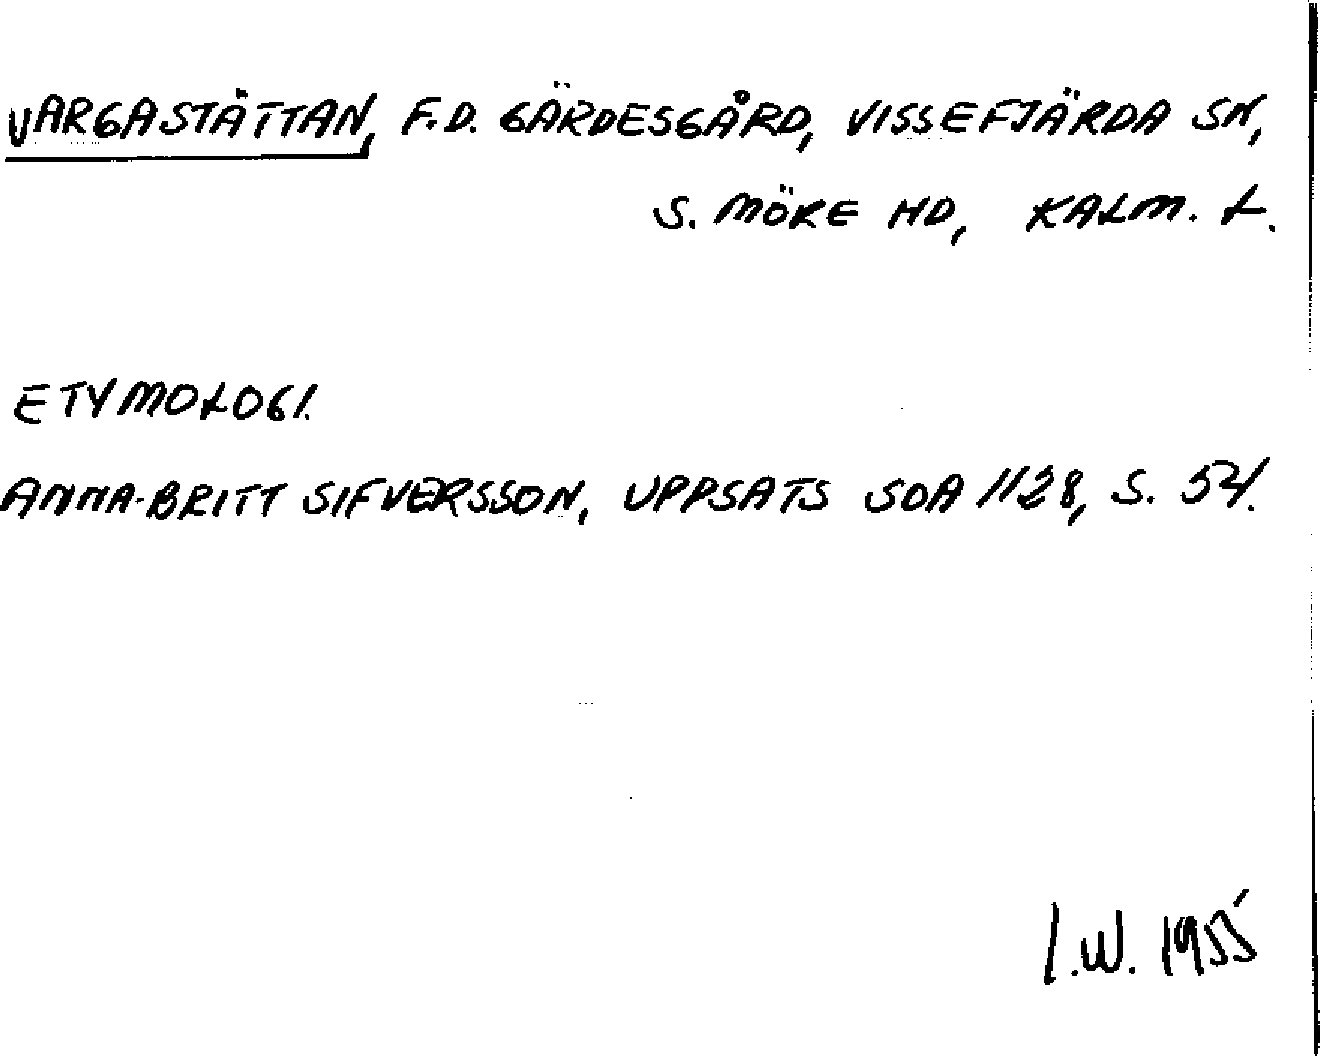 VARGASTÄTTAN, F.D. GÄRDESGÅRD, VISSEFJÄRDA SN,
S. MÖRE HD, KALM. L.
ETYMOLOGI.
ANNA-BRITT SIFVERSSON, UPPSATS SOA 1128, S. 54.
I.W. 1955